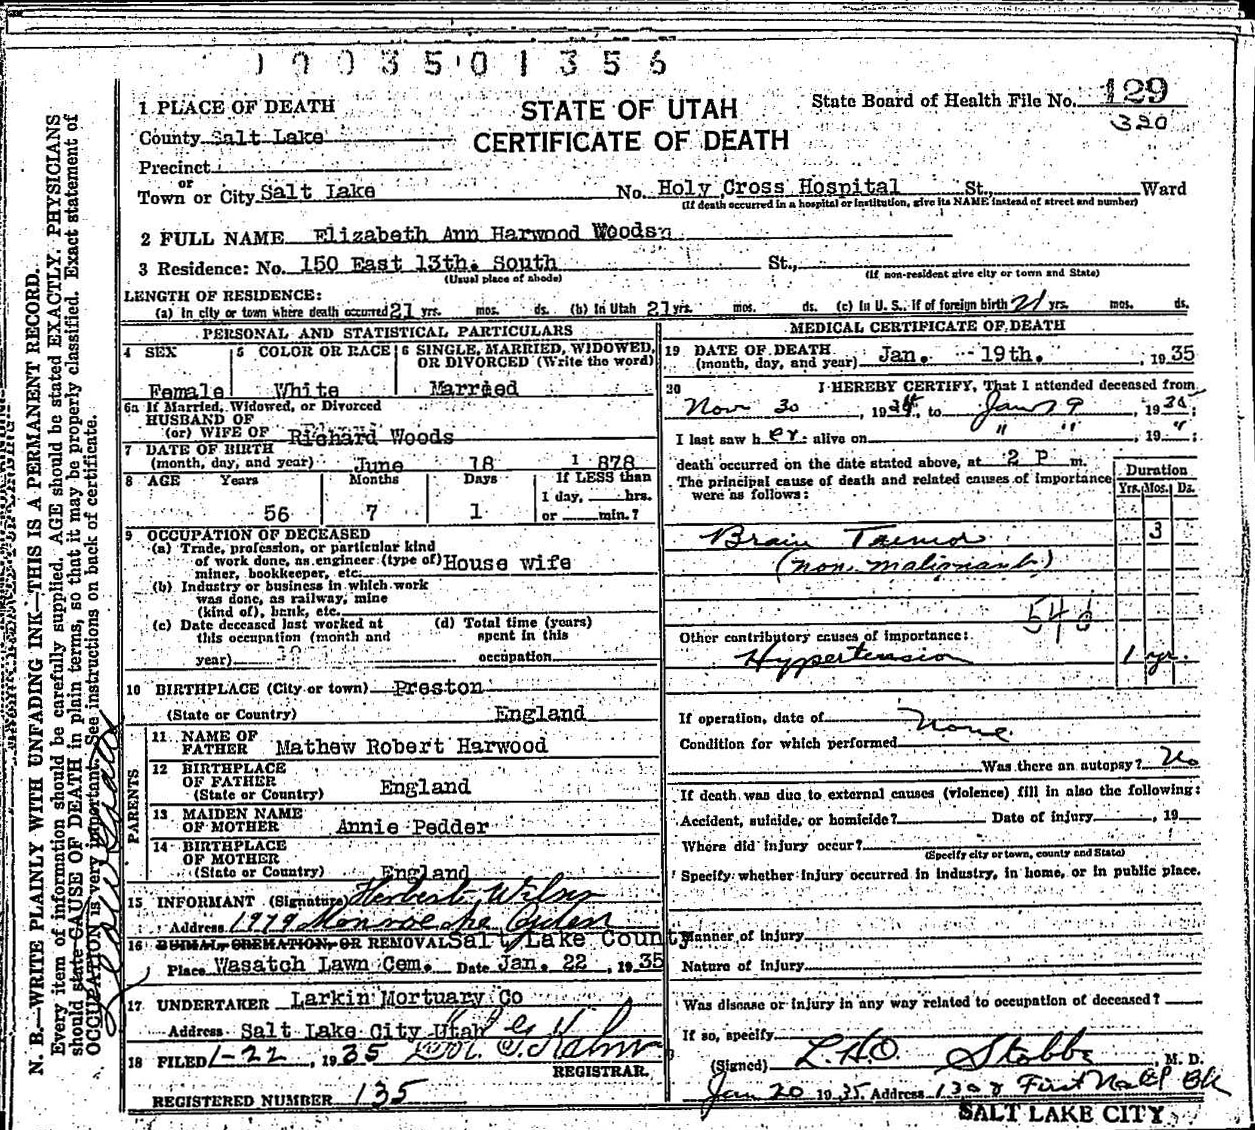 1003501356
1 PLACE OF DEATH
STATE OF UTAH
State Board of Health File No. 129
County Salt Lake
CERTIFICATE OF DEATH
320
Precinct
or
Town or City Salt Lake No. Holy Cross Hospital St., Ward
(If death occurred in a hospital or institution, give its NAME instead of street and number)
2 FULL NAME Elizabeth Ann Harwood Woods
3 Residence: No. 150 East 13th. South St.,
(Usual place of abode) (If non-resident give city or town and State)
LENGTH OF RESIDENCE:
(a) In city or town where death occurred 21 yrs. mos. ds. (b) In Utah 21 yrs. mos. ds. (c) In U. S., if of foreign birth 21 yrs. mos. ds.
PERSONAL AND STATISTICAL PARTICULARS
4 SEX
Female
5 COLOR OR RACE
White
6 SINGLE, MARRIED, WIDOWED,
OR DIVORCED (Write the word)
Married
6a If Married, Widowed, or Divorced
HUSBAND OF
(or) WIFE OF Richard Woods
7 DATE OF BIRTH
(month, day, and year) June 18 1 878
8 AGE Years Months Days If LESS than
1 day, hrs.
56 7 1 or min.?
9 OCCUPATION OF DECEASED
(a) Trade, profession, or particular kind
of work done, as engineer (type of) House wife
miner, bookkeeper, etc.
(b) Industry or business in which work
was done, as railway, mine
(kind of), bank, etc.
(c) Date deceased last worked at
this occupation (month and
year) 19
(d) Total time (years)
spent in this
occupation
10 BIRTHPLACE (City or town) Preston
(State or Country) England
PARENTS
11 NAME OF
FATHER Mathew Robert Harwood
12 BIRTHPLACE
OF FATHER
(State or Country) England
13 MAIDEN NAME
OF MOTHER Annie Pedder
14 BIRTHPLACE
OF MOTHER
(State or Country) England
15 INFORMANT (Signature) Herbert Wilson
Address 1979 Monroe Ave Ogden
16 BURIAL, CREMATION, OR REMOVAL Salt Lake County
Place Wasatch Lawn Cem. Date Jan. 22, 1935
17 UNDERTAKER Larkin Mortuary Co
Address Salt Lake City Utah
18 FILED 1-22, 1935
REGISTRAR.
REGISTERED NUMBER 135
MEDICAL CERTIFICATE OF DEATH
19 DATE OF DEATH
(month, day, and year) Jan. 19th. , 1935
20 I HEREBY CERTIFY, That I attended deceased from
Nov 30, 1934, to Jan 19, 1935
I last saw her alive on " " , 19 " ;
death occurred on the date stated above, at 2 P m.
The principal cause of death and related causes of importance
were as follows:
Duration
Yrs. Mos. Ds.
Brain Tumor 3
(non. malignant)
Other contributory causes of importance:
Hypertension 1 yr.
If operation, date of None
Condition for which performed
Was there an autopsy? No
If death was due to external causes (violence) fill in also the following:
Accident, suicide, or homicide? Date of injury , 19
Where did injury occur?
(Specify city or town, county and State)
Specify whether injury occurred in industry, in home, or in public place.
Manner of injury
Nature of injury
Was disease or injury in any way related to occupation of deceased?
If so, specify
(Signed) L.H.O. Stobbe, M. D.
Jan 20 1935 Address 1308 First Natl Bk
SALT LAKE CITY
N. B.—WRITE PLAINLY WITH UNFADING INK—THIS IS A PERMANENT RECORD.
Every item of information should be carefully supplied. AGE should be stated EXACTLY. PHYSICIANS
should state CAUSE OF DEATH in plain terms, so that it may be properly classified. Exact statement of
OCCUPATION is very important. See instructions on back of certificate.